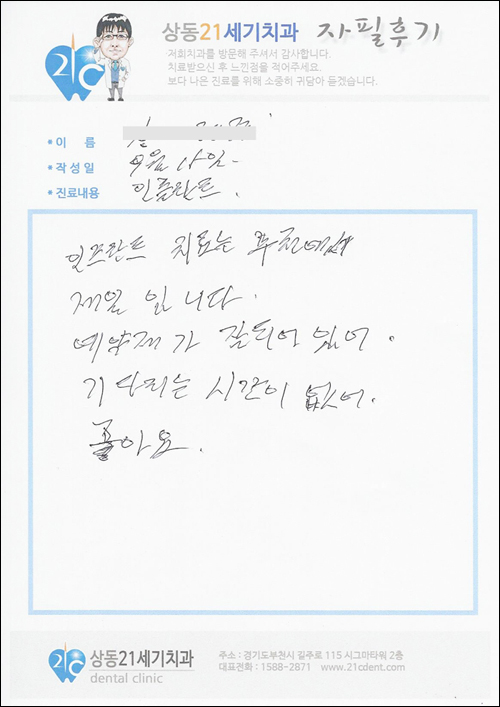 상동21세기치과 자필후기
저희치과를 방문해 주셔서 감사합니다.
치료받으신 후 느낀점을 적어주세요.
보다 나은 진료를 위해 소중히 귀담아 듣겠습니다.
21C
* 이 름
* 작성일
* 진료내용 임플란트.
임프란트 치료는 부천에서
제일 입니다.
예약제가 잘되어 있어.
기다리는 시간이 없어.
좋아요.
21C 상동21세기치과
dental clinic
주소 : 경기도부천시 길주로 115 시그마타워 2층
대표전화 : 1588-2871 www.21cdent.com